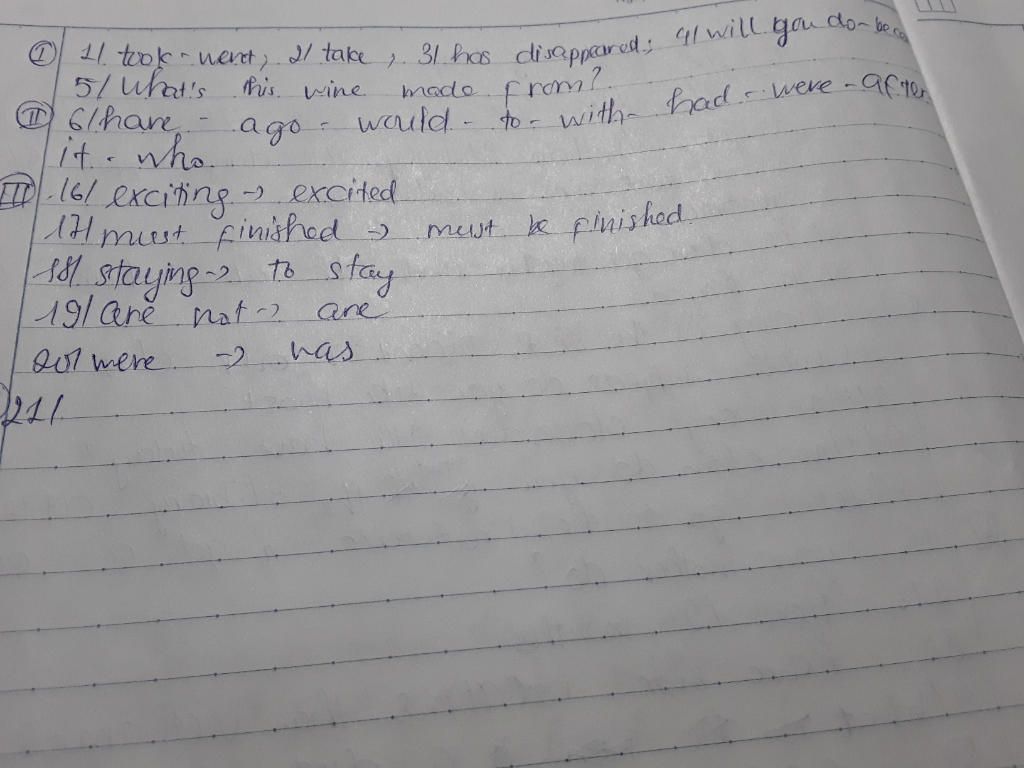 I 1/. took - went, 2/ take, 3/ has disappeared; 4/ will you do - beco
5/ What's this wine made from?
II 6/ have - ago - would - to - with - had - were - after
it - who.
III 16/ exciting → excited
17/ must finished → must be finished
18/ staying → to stay
19/ are not → are
20/ were → was
21/